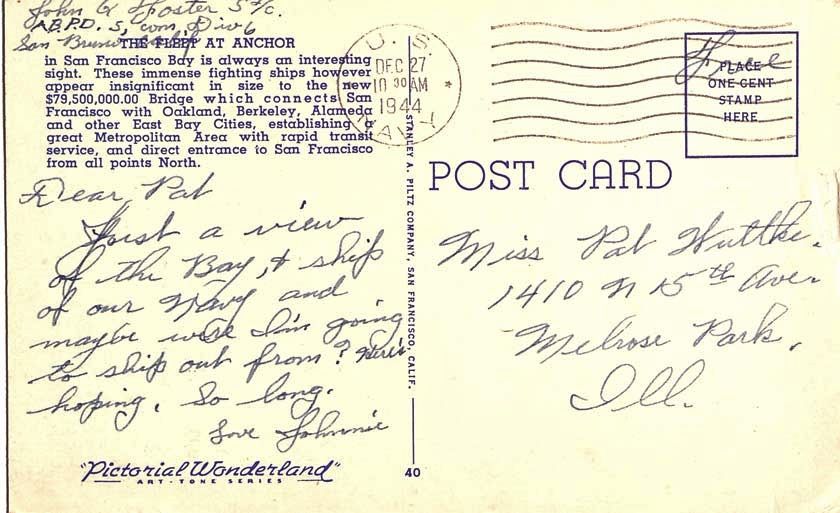 John G Foster S2/c.
A.B.P.D. S, com, Div 6
San Bruno, Calif
THE FLEET AT ANCHOR
in San Francisco Bay is always an interesting
sight. These immense fighting ships however
appear insignificant in size to the new
$79,500,000.00 Bridge which connects San
Francisco with Oakland, Berkeley, Alameda
and other East Bay Cities, establishing a
great Metropolitan Area with rapid transit
service, and direct entrance to San Francisco
from all points North.
U. S.
DEC 27
10 30 AM
1944
NAVY
Free
PLACE
ONE CENT
STAMP
HERE
POST CARD
STANLEY A. PILTZ COMPANY, SAN FRANCISCO, CALIF.
Dear, Pat
Just a view
of the Bay, & ship
of our Navy and
maybe were I'm going
to ship out from? Here's
hoping. So long.
Love Johnnie
Miss Pat Wuttke.
1410 N 15th Aven
Melrose Park,
Ill.
"Pictorial Wonderland"
ART-TONE SERIES
40